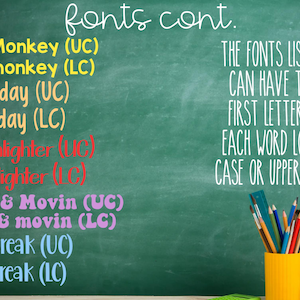 fonts cont.
Monkey (UC)
monkey (LC)
day (UC)
day (LC)
lighter (UC)
lighter (LC)
& Movin (UC)
& movin (LC)
reak (UC)
reak (LC)
THE FONTS LIS
CAN HAVE T
FIRST LETTER
EACH WORD LO
CASE OR UPPER